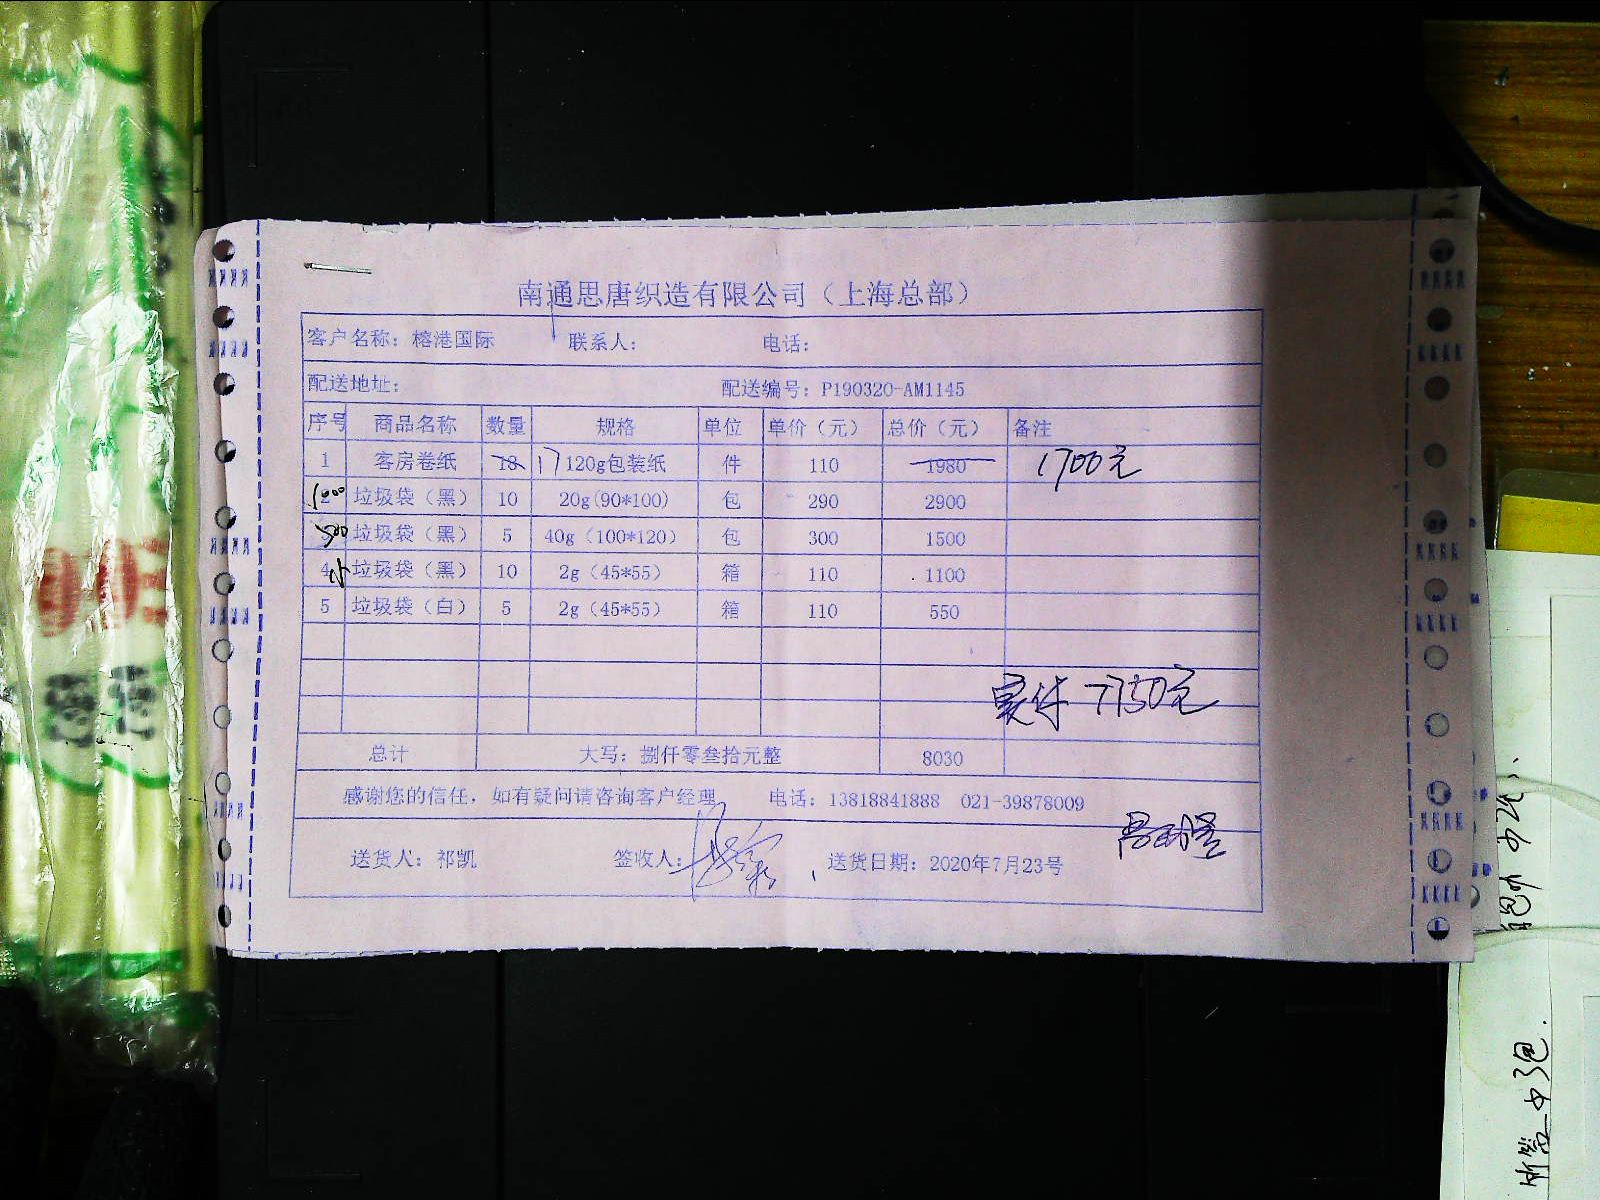 南通思唐织造有限公司（上海总部）
客户名称：榕港国际 联系人： 电话：
配送地址： 配送编号：P190320-AM1145
序号 商品名称 数量 规格 单位 单价（元） 总价（元） 备注
1 客房卷纸 18 17 120g包装纸 件 110 1980 1700元
2 1000 垃圾袋（黑） 10 20g(90*100) 包 290 2900
500 垃圾袋（黑） 5 40g（100*120） 包 300 1500
4 小 垃圾袋（黑） 10 2g（45*55） 箱 110 1100
5 垃圾袋（白） 5 2g（45*55） 箱 110 550
实付 7750元
总计 大写：捌仟零叁拾元整 8030
感谢您的信任，如有疑问请咨询客户经理 电话：13818841888 021-39878009
送货人：祁凯 签收人： 送货日期：2020年7月23号